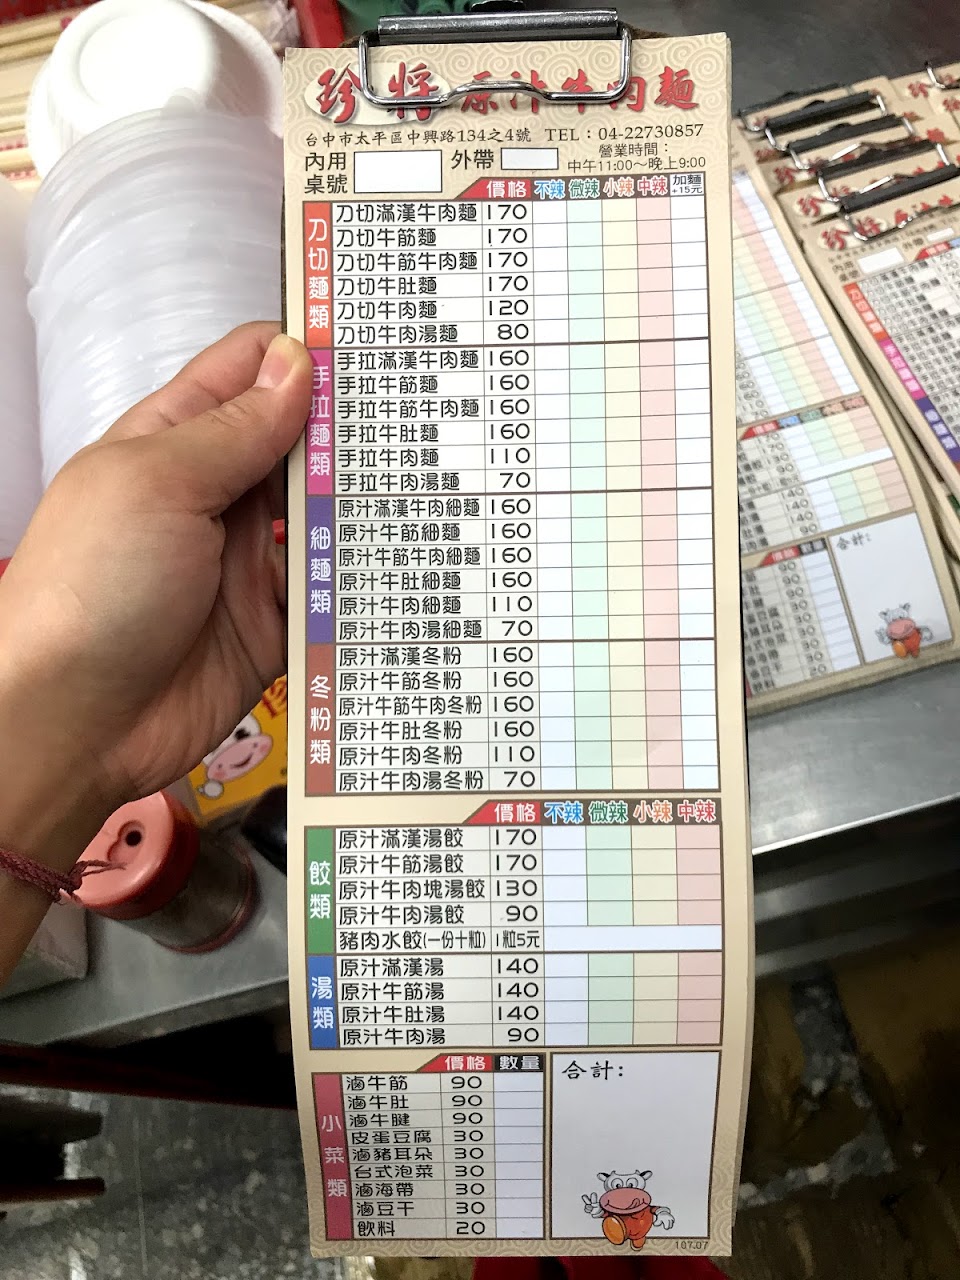 珍將原汁牛肉麵
台中市太平區中興路134之4號 TEL：04-22730857
內用 外帶 營業時間：
桌號 中午11:00～晚上9:00
價格 不辣 微辣 小辣 中辣 加麵+15元
刀切麵類
刀切滿漢牛肉麵 170
刀切牛筋麵 170
刀切牛筋牛肉麵 170
刀切牛肚麵 170
刀切牛肉麵 120
刀切牛肉湯麵 80
手拉麵類
手拉滿漢牛肉麵 160
手拉牛筋麵 160
手拉牛筋牛肉麵 160
手拉牛肚麵 160
手拉牛肉麵 110
手拉牛肉湯麵 70
細麵類
原汁滿漢牛肉細麵 160
原汁牛筋細麵 160
原汁牛筋牛肉細麵 160
原汁牛肚細麵 160
原汁牛肉細麵 110
原汁牛肉湯細麵 70
冬粉類
原汁滿漢冬粉 160
原汁牛筋冬粉 160
原汁牛筋牛肉冬粉 160
原汁牛肚冬粉 160
原汁牛肉冬粉 110
原汁牛肉湯冬粉 70
價格 不辣 微辣 小辣 中辣
餃類
原汁滿漢湯餃 170
原汁牛筋湯餃 170
原汁牛肉塊湯餃 130
原汁牛肉湯餃 90
豬肉水餃(一份十粒) 1粒5元
湯類
原汁滿漢湯 140
原汁牛筋湯 140
原汁牛肚湯 140
原汁牛肉湯 90
價格 數量
小菜類
滷牛筋 90
滷牛肚 90
滷牛腱 90
皮蛋豆腐 30
滷豬耳朵 30
台式泡菜 30
滷海帶 30
滷豆干 30
飲料 20
合計：
107.07